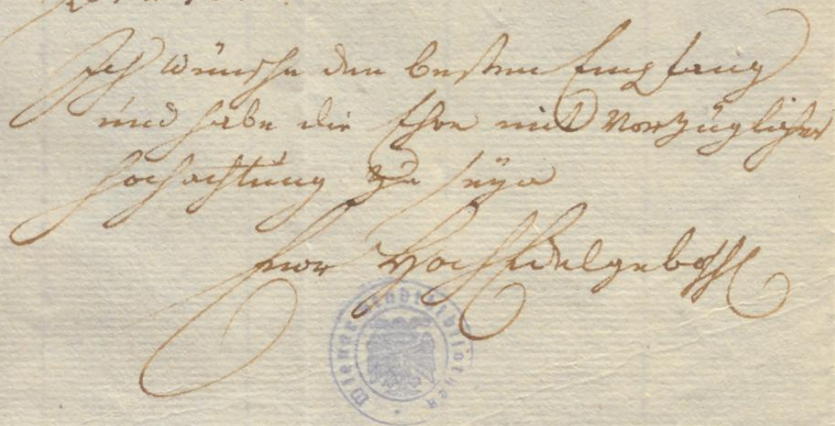 Ich wünsche den besten Empfang
und habe die Ehre mit vorzüglicher
Hochachtung zu seyn
Euer HochEdelgebohr
Wiener Stadtbibliothek